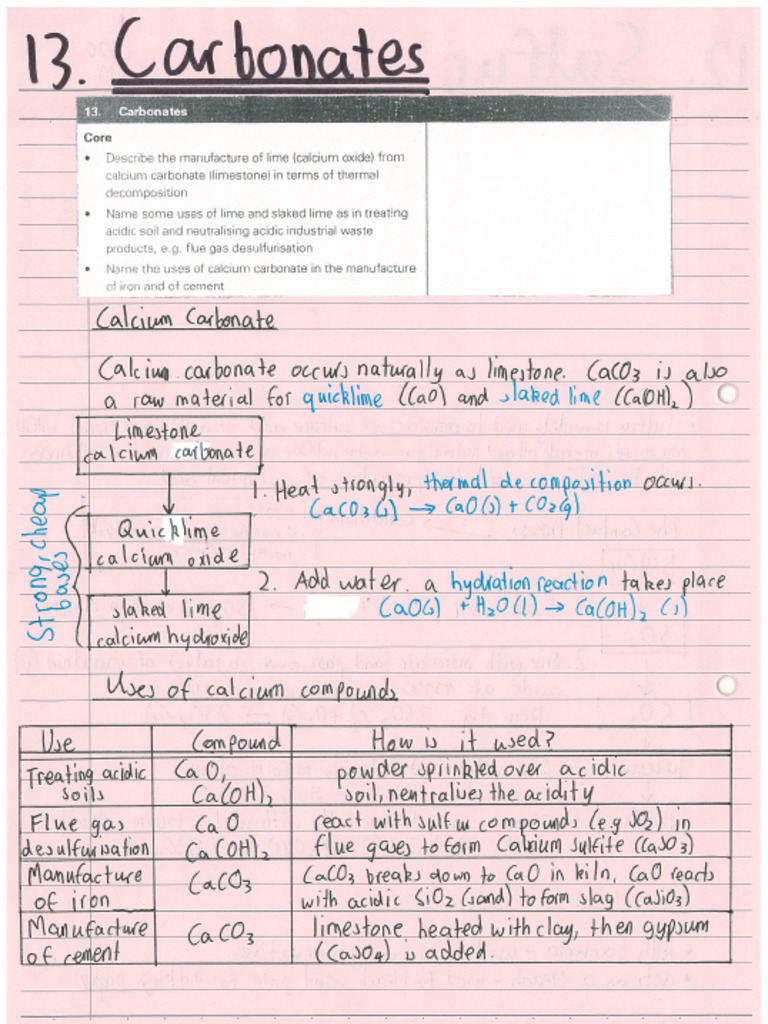 13. Carbonates
13. Carbonates
Core
• Describe the manufacture of lime (calcium oxide) from
calcium carbonate (limestone) in terms of thermal
decomposition
• Name some uses of lime and slaked lime as in treating
acidic soil and neutralising acidic industrial waste
products, e.g. flue gas desulfurisation
• Name the uses of calcium carbonate in the manufacture
of iron and of cement
Calcium Carbonate
Calcium carbonate occurs naturally as limestone. CaCO3 is also
a raw material for quicklime (CaO) and slaked lime (Ca(OH)2)
Limestone
calcium carbonate
1. Heat strongly, thermal decomposition occurs.
CaCO3(s) → CaO(s) + CO2(g)
Strong, cheap
bases
Quicklime
calcium oxide
2. Add water. a hydration reaction takes place
CaO(s) + H2O(l) → Ca(OH)2 (s)
slaked lime
calcium hydroxide
Uses of calcium compounds
Use Compound How is it used?
Treating acidic
soils
CaO,
Ca(OH)2
powder sprinkled over acidic
soil, neutralises the acidity
Flue gas
desulfurisation
CaO
Ca(OH)2
react with sulfur compounds (e.g SO2) in
flue gases to form Calcium sulfite (CaSO3)
Manufacture
of iron
CaCO3
CaCO3 breaks down to CaO in kiln, CaO reacts
with acidic SiO2 (sand) to form slag (CaSiO3)
Manufacture
of cement
CaCO3
limestone heated with clay, then gypsum
(CaSO4) is added.